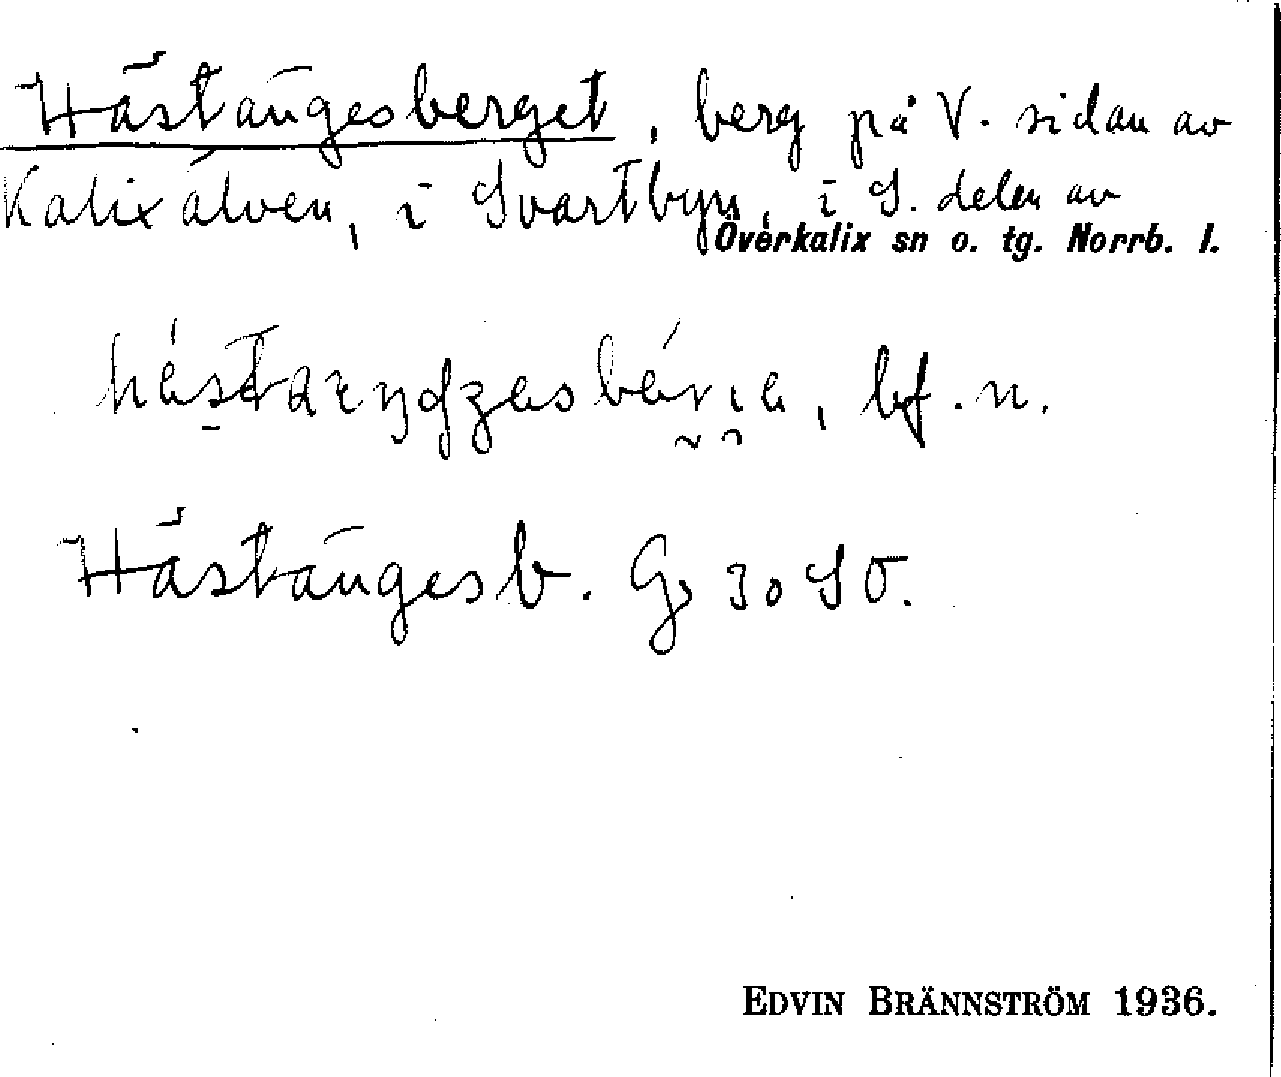 Hästängesberget, berg på V. sidan av
Kalixälven, i Svartbyn, i S. delen av
Överkalix sn o. tg. Norrb. l.
bf. n.
Hästängesb. Gs 30 SO.
EDVIN BRÄNNSTRÖM 1936.